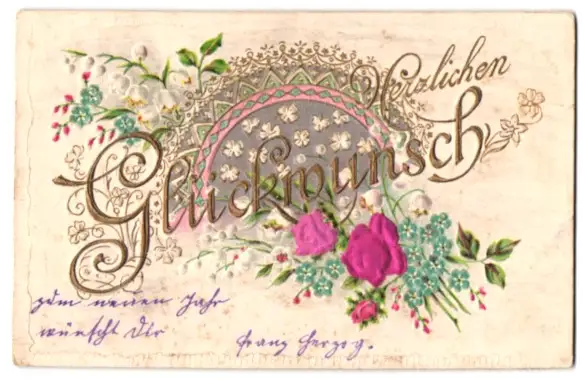 Herzlichen
Glückwunsch
zum neuen Jahr
wünscht Dir
Franz Herzog.